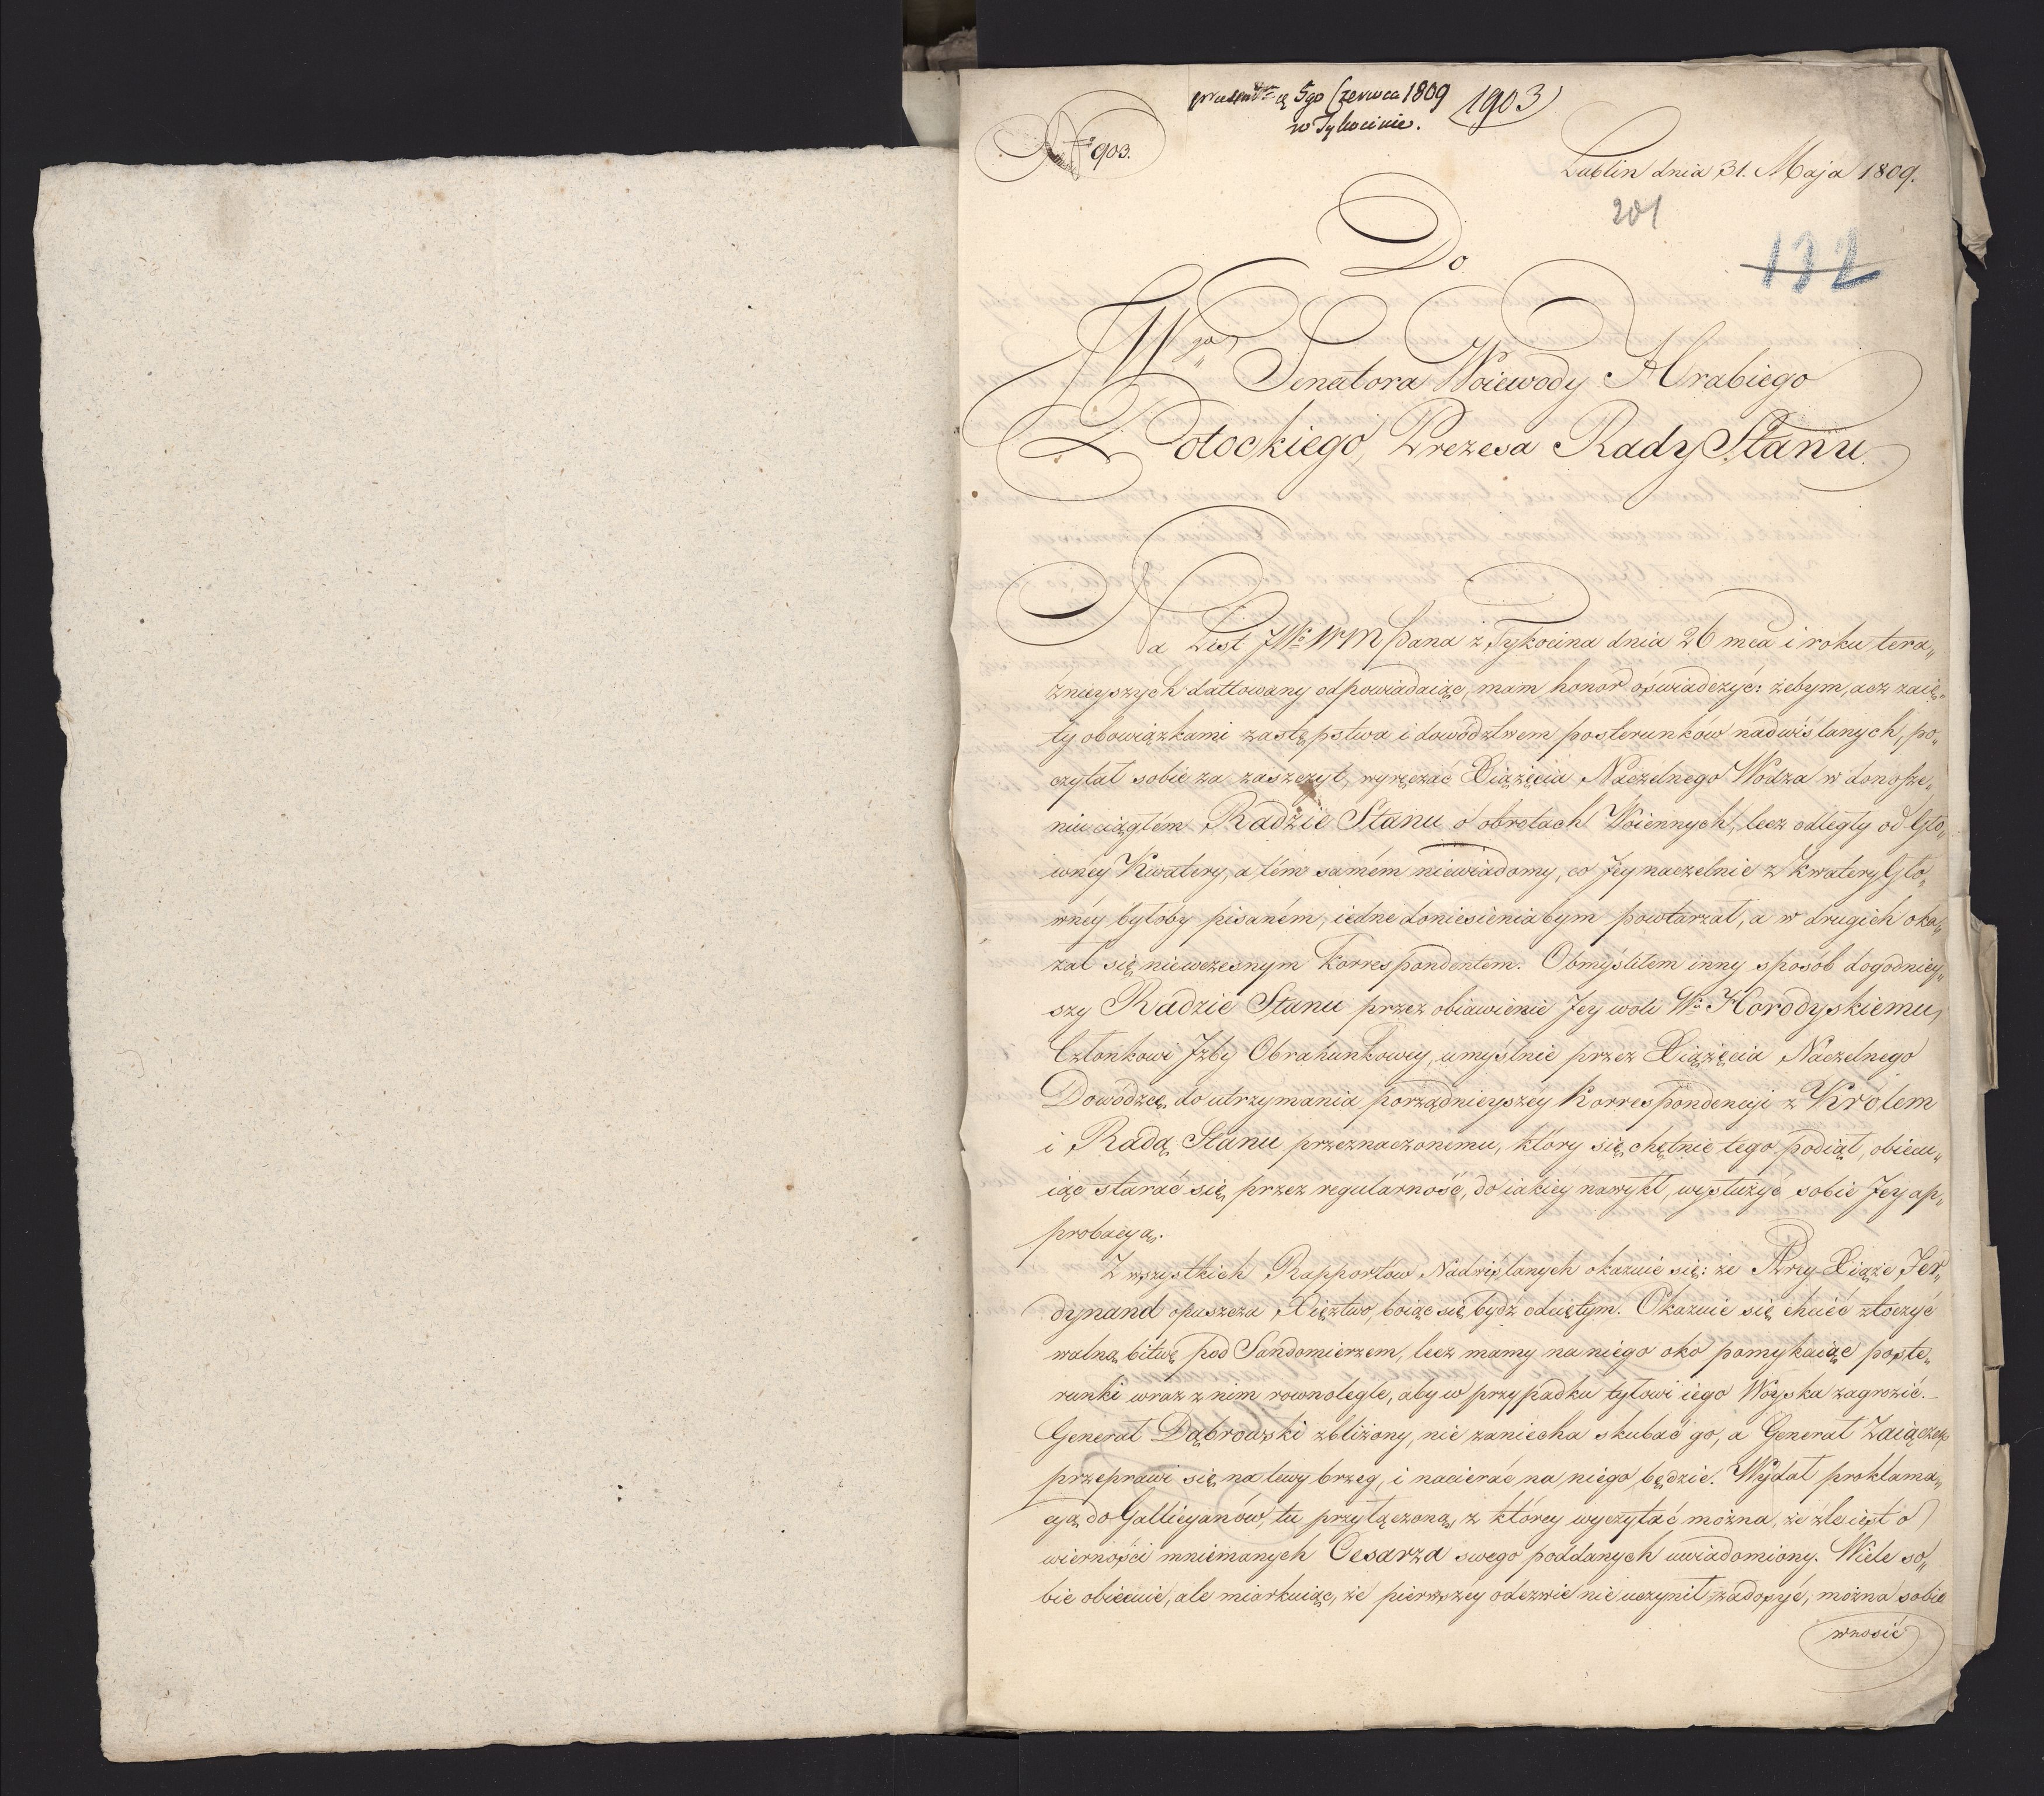 5go Czerwca 1809
w Tykocinie.
1903
No 903.
Lublin dnia 31. Maja 1809.
201
132
Do
JWgo Senatora Woiewody Hrabiego
Potockiego, Prezesa Rady Stanu.
Na List JWo WM Pana z Tykocina dnia 26 mca i roku tera„
znieyszych dattowany odpowiadaiąc, mam honor oświadczyć: żebym, acz zaię„
ty obowiązkami zastępstwa i dowództwem posterunków nadwiślanych, po„
czytał sobie za zaszczyt, wyręczać Xiążęcia Naczelnego Wodza w donosze„
niu ciągłém Radzie Stanu o obrotach Woiennych, lecz odległy od Głó„
wnéy Kwatery, a tém samém niewiadomy, co Jey naczelnie z Kwatery Głó„
wnéy byłoby pisaném, iedne doniesienia bym powtarzał, a w drugich oka„
zał się niewczesnym Korrespondentem. Obmyśliłem inny sposób dogodniey„
szy Radzie Stanu przez obiawienie Jey woli Wu Horodyskiemu,
Członkowi Jzby Obrahunkowey, umyślnie przez Xiążęcia Naczelnego
Dowódzcę do utrzymania porządnieyszey Korrespondencyi z Królem
i Radą Stanu przeznaczonemu, który się chętnie tego podiął, obiecu„
iąc starać się przez regularność, do iakiey nawykł, wysłużyć sobie Jey ap„
probacyą.
Z wszystkich Rapportów Nadwiślanych okazuie się: że Arcy Xiąże Fer„
dynand opuszcza Xięztwo, boiąc się bydź odciętym. Okazuie się chcieć złoczyć
walną bitwę pod Sandomierzem, lecz mamy na niego oko pomykaiąc poste„
runki wraz z nim rownolegle, aby w przypadku tyłowi iego Woyska zagrozić. _
Generał Dąbrowski zbliżony, nie zaniecha skubać go, a Generał Zaiączek
przeprawi się na lewy brzeg, i nacierać na niego będzie. Wydał proklama„
cyą do Gallicyanów, tu przyłączoną, z którey wyczytać można, że źle iest o
wierności mniemanych Cesarza swego poddanych uwiadomiony. Wiele so„
bie obiecuie, ale miarkuiąc, że pierwszey odezwie nie uczynił zadosyć, można sobie
wnosić